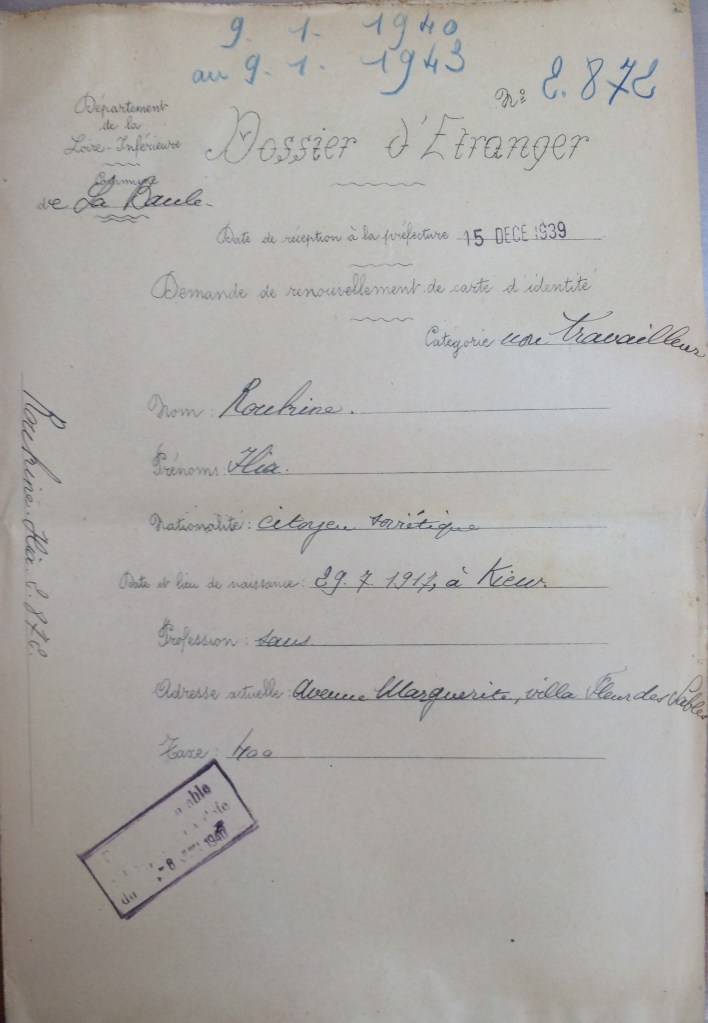 9. 1. 1940
au 9. 1. 1943
N° 2.872
Département
de la
Loire-Inférieure
Commune
de La Baule
Dossier d'Etranger
Date de réception à la préfecture 15 DECE 1939
Demande de renouvellement de carte d'identité
Catégorie non travailleur
Nom: Roubine.
Prénoms: Ilia.
Nationalité: citoyen soviétique
Date et lieu de naissance: 29.7.1917, à Kiew.
Profession: sans.
Adresse actuelle: Avenue Marguerite, villa Fleur des Sables
Taxe: 400
Roubine Ilia 2.872.
able
du 8 1940